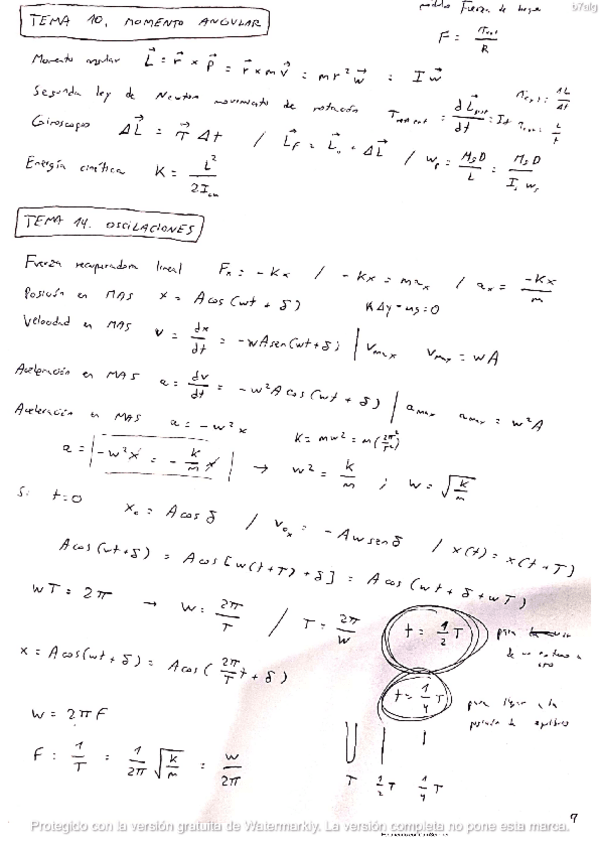 b7alg
TEMA 10. MOMENTO ANGULAR
módulo Fuerza de
F = τ / R
Momento angular L⃗ = r⃗ × p⃗ = r⃗ × m v⃗ = m r² w⃗ = I w⃗
Segunda ley de Newton movimiento de rotación τ = dL⃗ / dt
Giroscopo ΔL⃗ = τ⃗ Δt / L⃗f = L⃗o + ΔL⃗ / wp = MgD / L = MgD / I ws
Energía cinética K = L² / 2Icm
TEMA 14. OSCILACIONES
Fuerza recuperadora lineal Fx = -Kx / -Kx = max / ax = -Kx / m
Posición en MAS x = A cos(wt + δ) KΔy - mg = 0
Velocidad en MAS v = dx/dt = -wA sen(wt + δ) | vmax vmax = wA
Aceleración en MAS a = dv/dt = -w²A cos(wt + δ) | amax amax = w²A
Aceleración en MAS a = -w²x K = mw² = m(2π² / T²)
a = |-w²x = - K/m x| → w² = K/m ; w = √(K/m)
Si t = 0 xo = A cos δ / vox = -Aw sen δ / x(t) = x(t + T)
A cos(wt + δ) = A cos[w(t + T) + δ] = A cos(wt + δ + wT)
wT = 2π → w = 2π/T / T = 2π/w
t = 1/2 T para
de un extremo a
otro
x = A cos(wt + δ) = A cos(2π/T t + δ)
t = 1/4 T para llegar a la
posición de equilibrio
w = 2πF
F = 1/T = 1/2π √(K/m) = w/2π
T 1/2 T 1/4 T
9
Protegido con la versión gratuita de Watermarkly. La versión completa no pone esta marca.